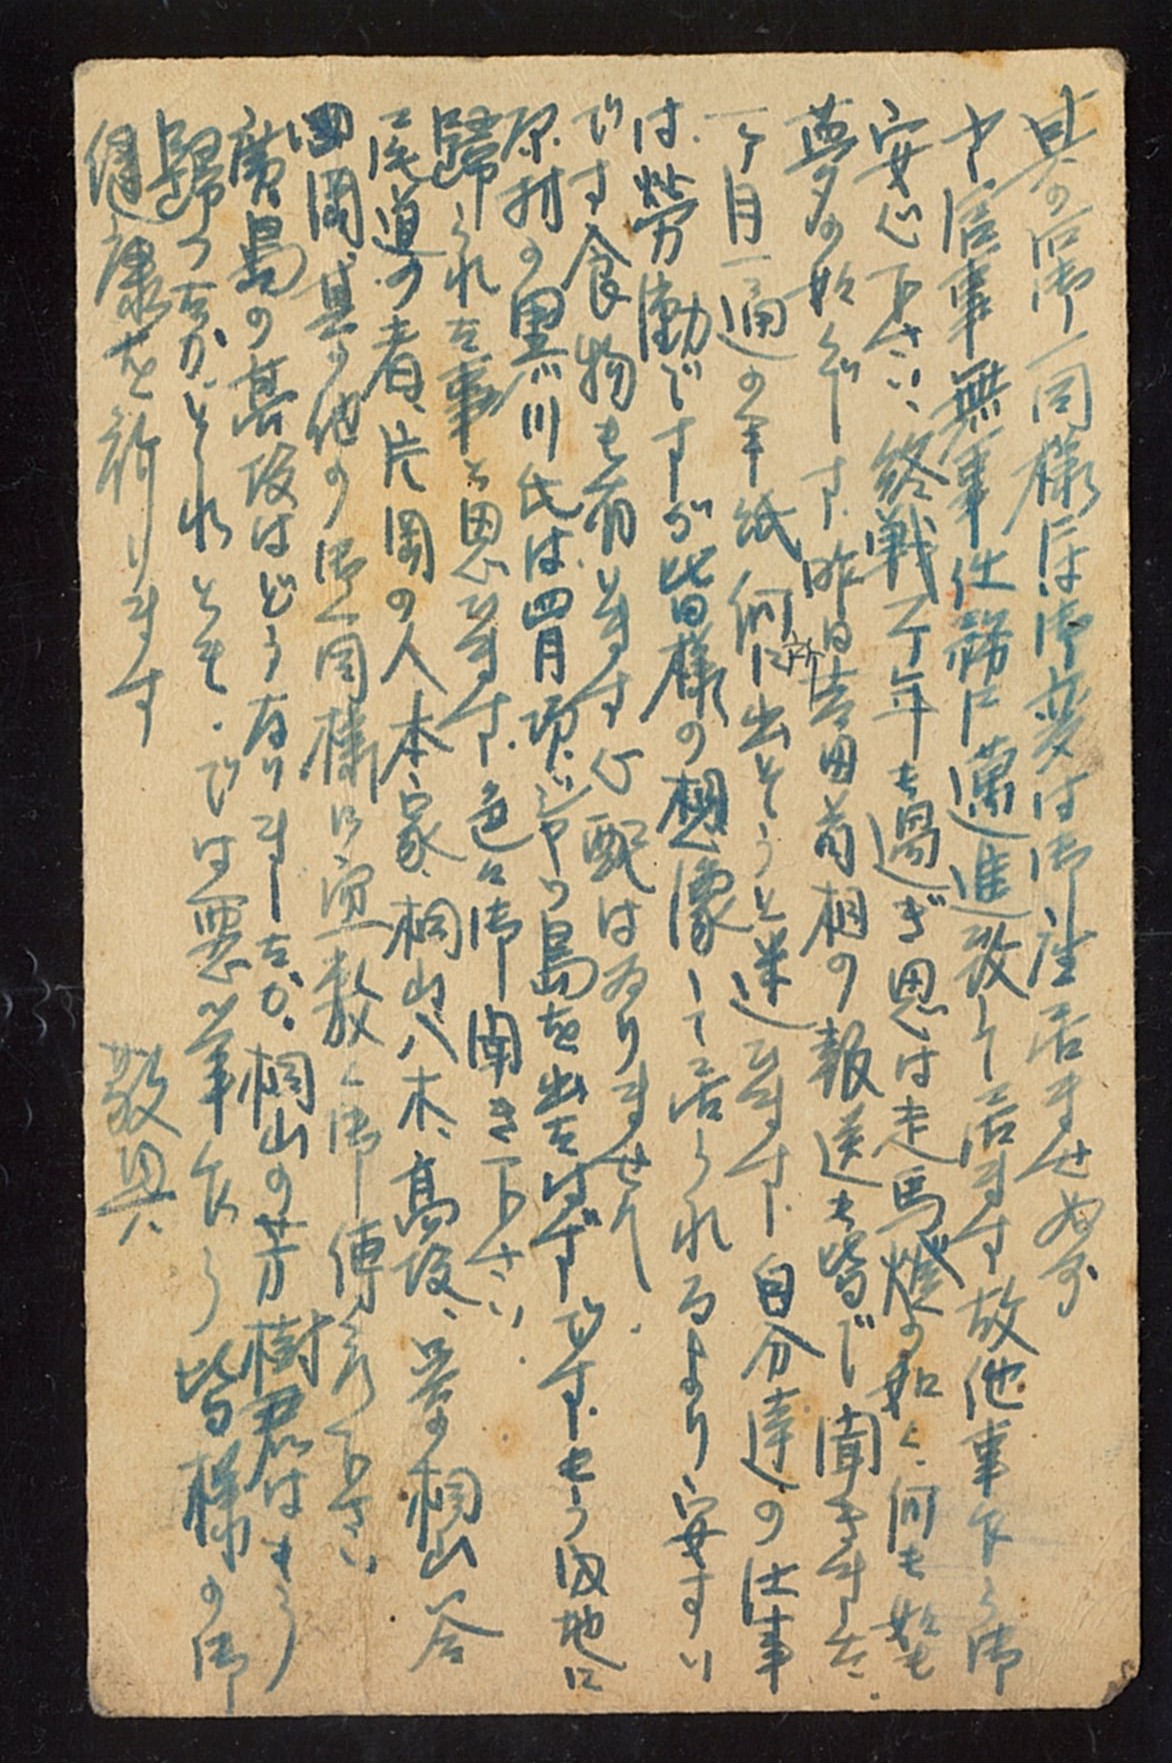 其の后御一同様には御変は御座居ませぬか
小官事無事仕務に邁進致して居ます故他事乍ら御
安心下さい、終戦一ケ年も過ぎ思は走馬燈の如く、何も
夢の如くです、昨日吉田首相の報送も皆で聞きました、
一ケ月一通の手紙何所に出そうと迷ひます、自分達の仕事
は労働ですが皆様の想像して居られるより安すい
です食物も有ります心配はありません、
原村の黒川氏は四月頃シヤワ島を出たはずですもう内地に
歸られた事と思ひます、色々御聞き下さい、
尾道の者、片岡の人本家、桐山、八木、高段、桐山
岡、其の他の御一同様に宜敷く御傳え下さい
廣島の高段はどうなりましたか、桐山の芳樹君はもう
歸つたかどれとも、では悪筆乍ら皆様の御
健康を祈ります 敬具